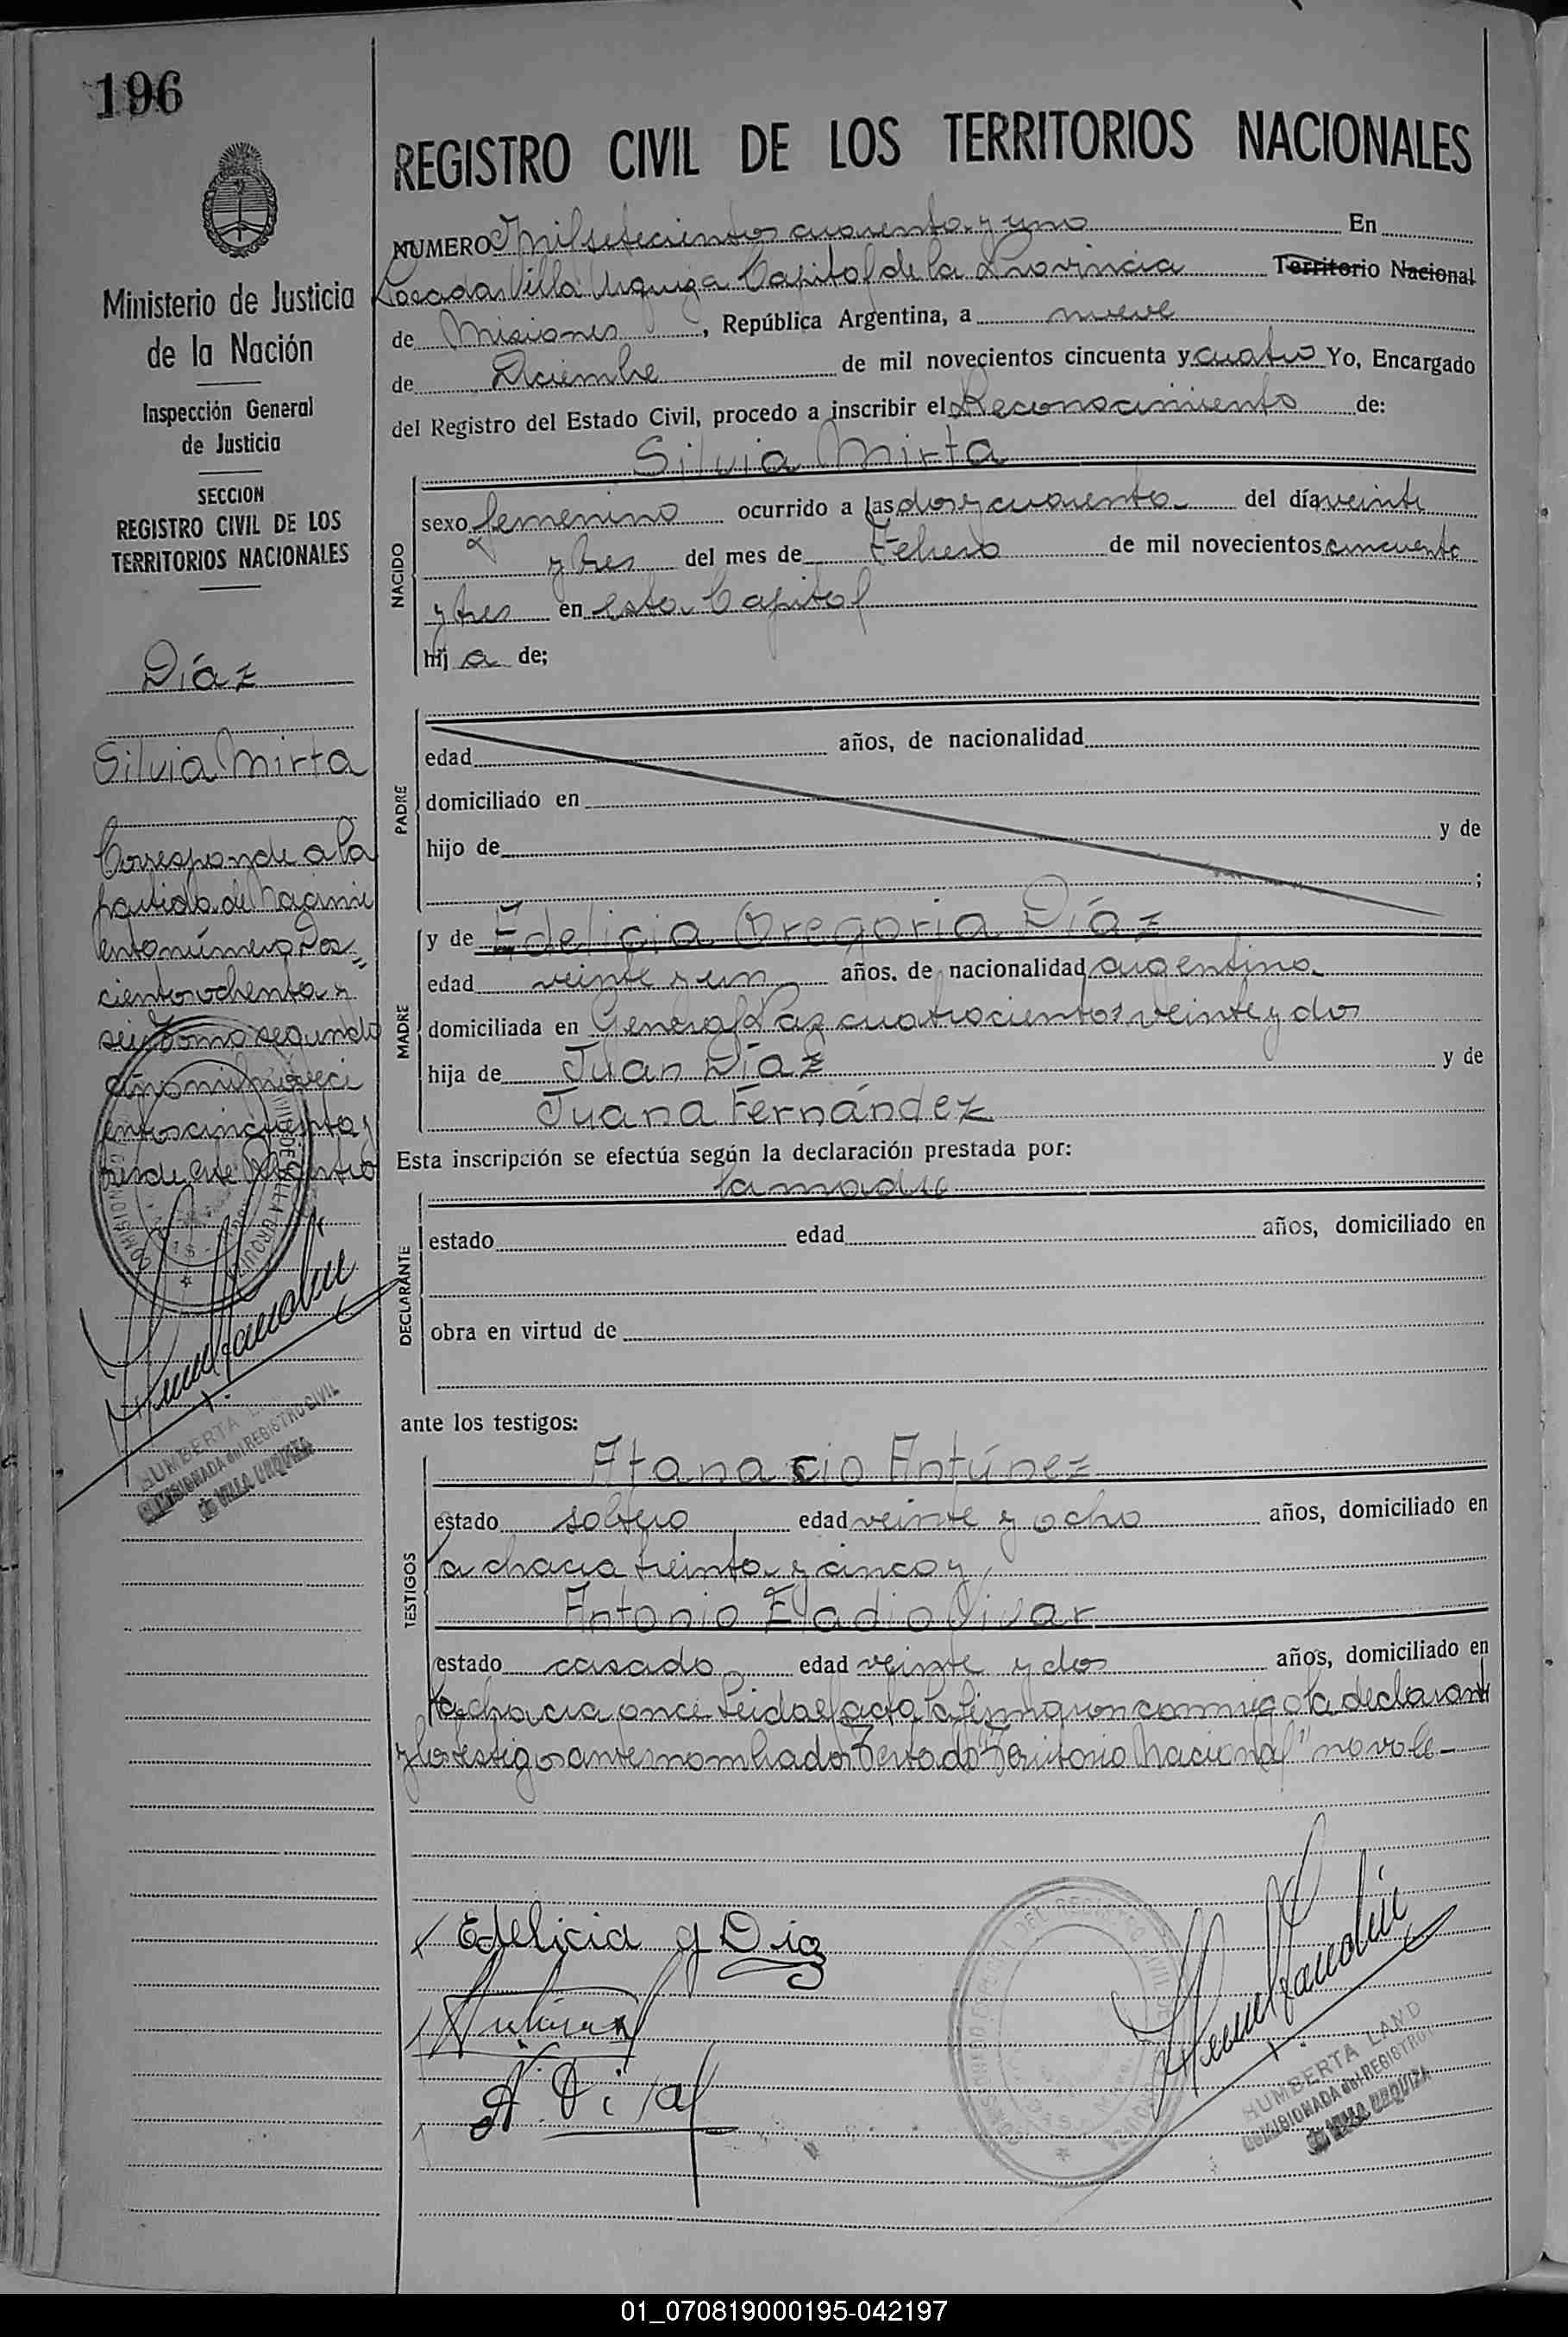 196
Ministerio de Justicia
de la Nación
Inspección General
de Justicia
SECCION
REGISTRO CIVIL DE LOS
TERRITORIOS NACIONALES
Díaz
Silvia Mirta
Corresponde a la
partida de Nacimi
ento número Dos=
cientos ochenta y
seis tomo segundo
año mil noveci
entos cincuenta y
tres de este Registro
HUMBERTA
COMISIONADA del REGISTRO CIVIL
de VILLA URQUIZA
REGISTRO CIVIL DE LOS TERRITORIOS NACIONALES
NUMERO Mil setecientos cuarenta y uno En
Posadas Villa Urquiza Capital de la Provincia Territorio Nacional
de Misiones, República Argentina, a nueve
de Diciembre de mil novecientos cincuenta y cuatro Yo, Encargado
del Registro del Estado Civil, procedo a inscribir el Reconocimiento de:
Silvia Mirta
NACIDO
sexo femenino ocurrido a las dos y cuarenta del día veinte
y tres del mes de Febrero de mil novecientos cincuenta
y tres en esta Capital
hij a de;
PADRE
edad años, de nacionalidad
domiciliado en
hijo de y de
;
MADRE
y de Edelicia Gregoria Díaz
edad veinte y un años, de nacionalidad argentina
domiciliada en General Paz cuatrocientos veinte y dos
hija de Juan Díaz y de
Juana Fernández
Esta inscripción se efectúa según la declaración prestada por:
la madre
DECLARANTE
estado edad años, domiciliado en
obra en virtud de
ante los testigos:
TESTIGOS
Atanacio Antúnez
estado soltero edad veinte y ocho años, domiciliado en
la chacra treinta y cinco y
Antonio Eladio Vivar
estado casado edad veinte y dos años, domiciliado en
la chacra once Leida el acta la firmaron conmigo la declarante
y los testigos antes nombrados Testado "Territorio Nacional" no vale
Edelicia g Diaz
HUMBERTA LAND
COMISIONADA del REGISTRO
de VILLA URQUIZA
01_070819000195-042197